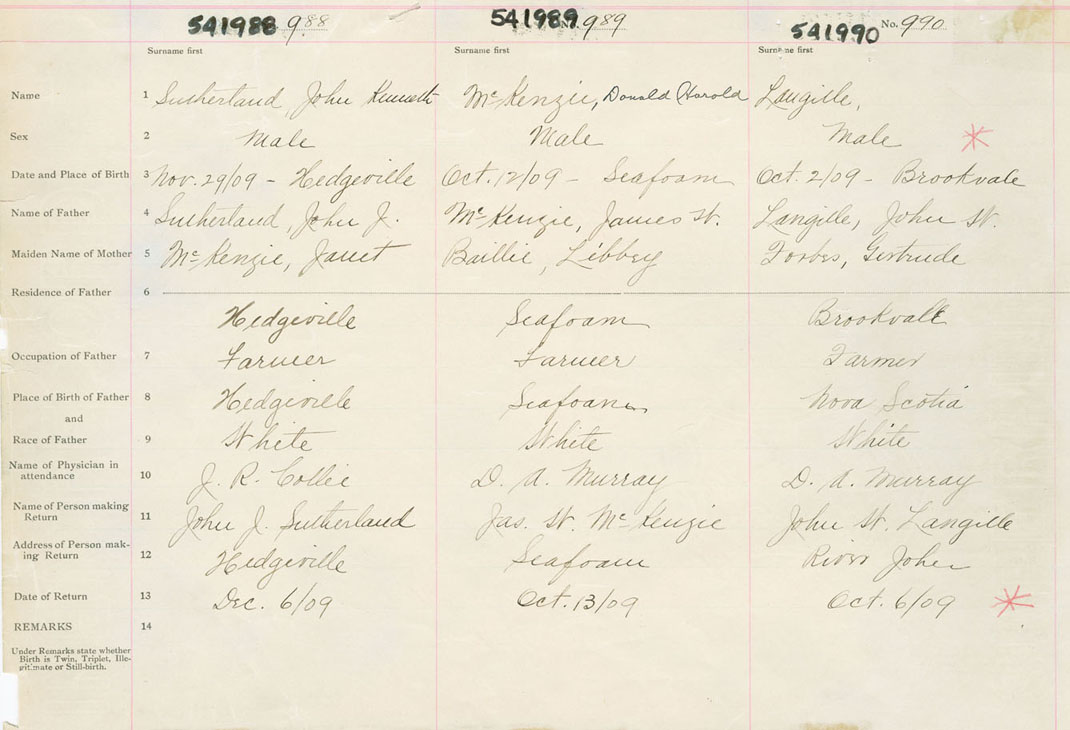 541988 988 541989 989 541990 No. 990
Surname first Surname first Surname first
Name 1 Sutherland, John Kenneth McKenzie, Donald Harold Langille,
Sex 2 Male Male Male
Date and Place of Birth 3 Nov. 29/09 - Hedgeville Oct. 12/09 - Seafoam Oct. 2/09 - Brookvale
Name of Father 4 Sutherland, John J. McKenzie, James W. Langille, John W.
Maiden Name of Mother 5 McKenzie, Janet Baillie, Libbey Forbes, Gertrude
Residence of Father 6
Hedgeville Seafoam Brookvale
Occupation of Father 7 Farmer Farmer Farmer
Place of Birth of Father 8 Hedgeville Seafoam Nova Scotia
and
Race of Father 9 White White White
Name of Physician in
attendance 10 J. R. Collie D. A. Murray D. A. Murray
Name of Person making
Return 11 John J. Sutherland Jas. W. McKenzie John W. Langille
Address of Person mak-
ing Return 12 Hedgeville Seafoam River John
Date of Return 13 Dec. 6/09 Oct. 13/09 Oct. 6/09
REMARKS 14
Under Remarks state whether
Birth is Twin, Triplet, Ille-
gitimate or Still-birth.